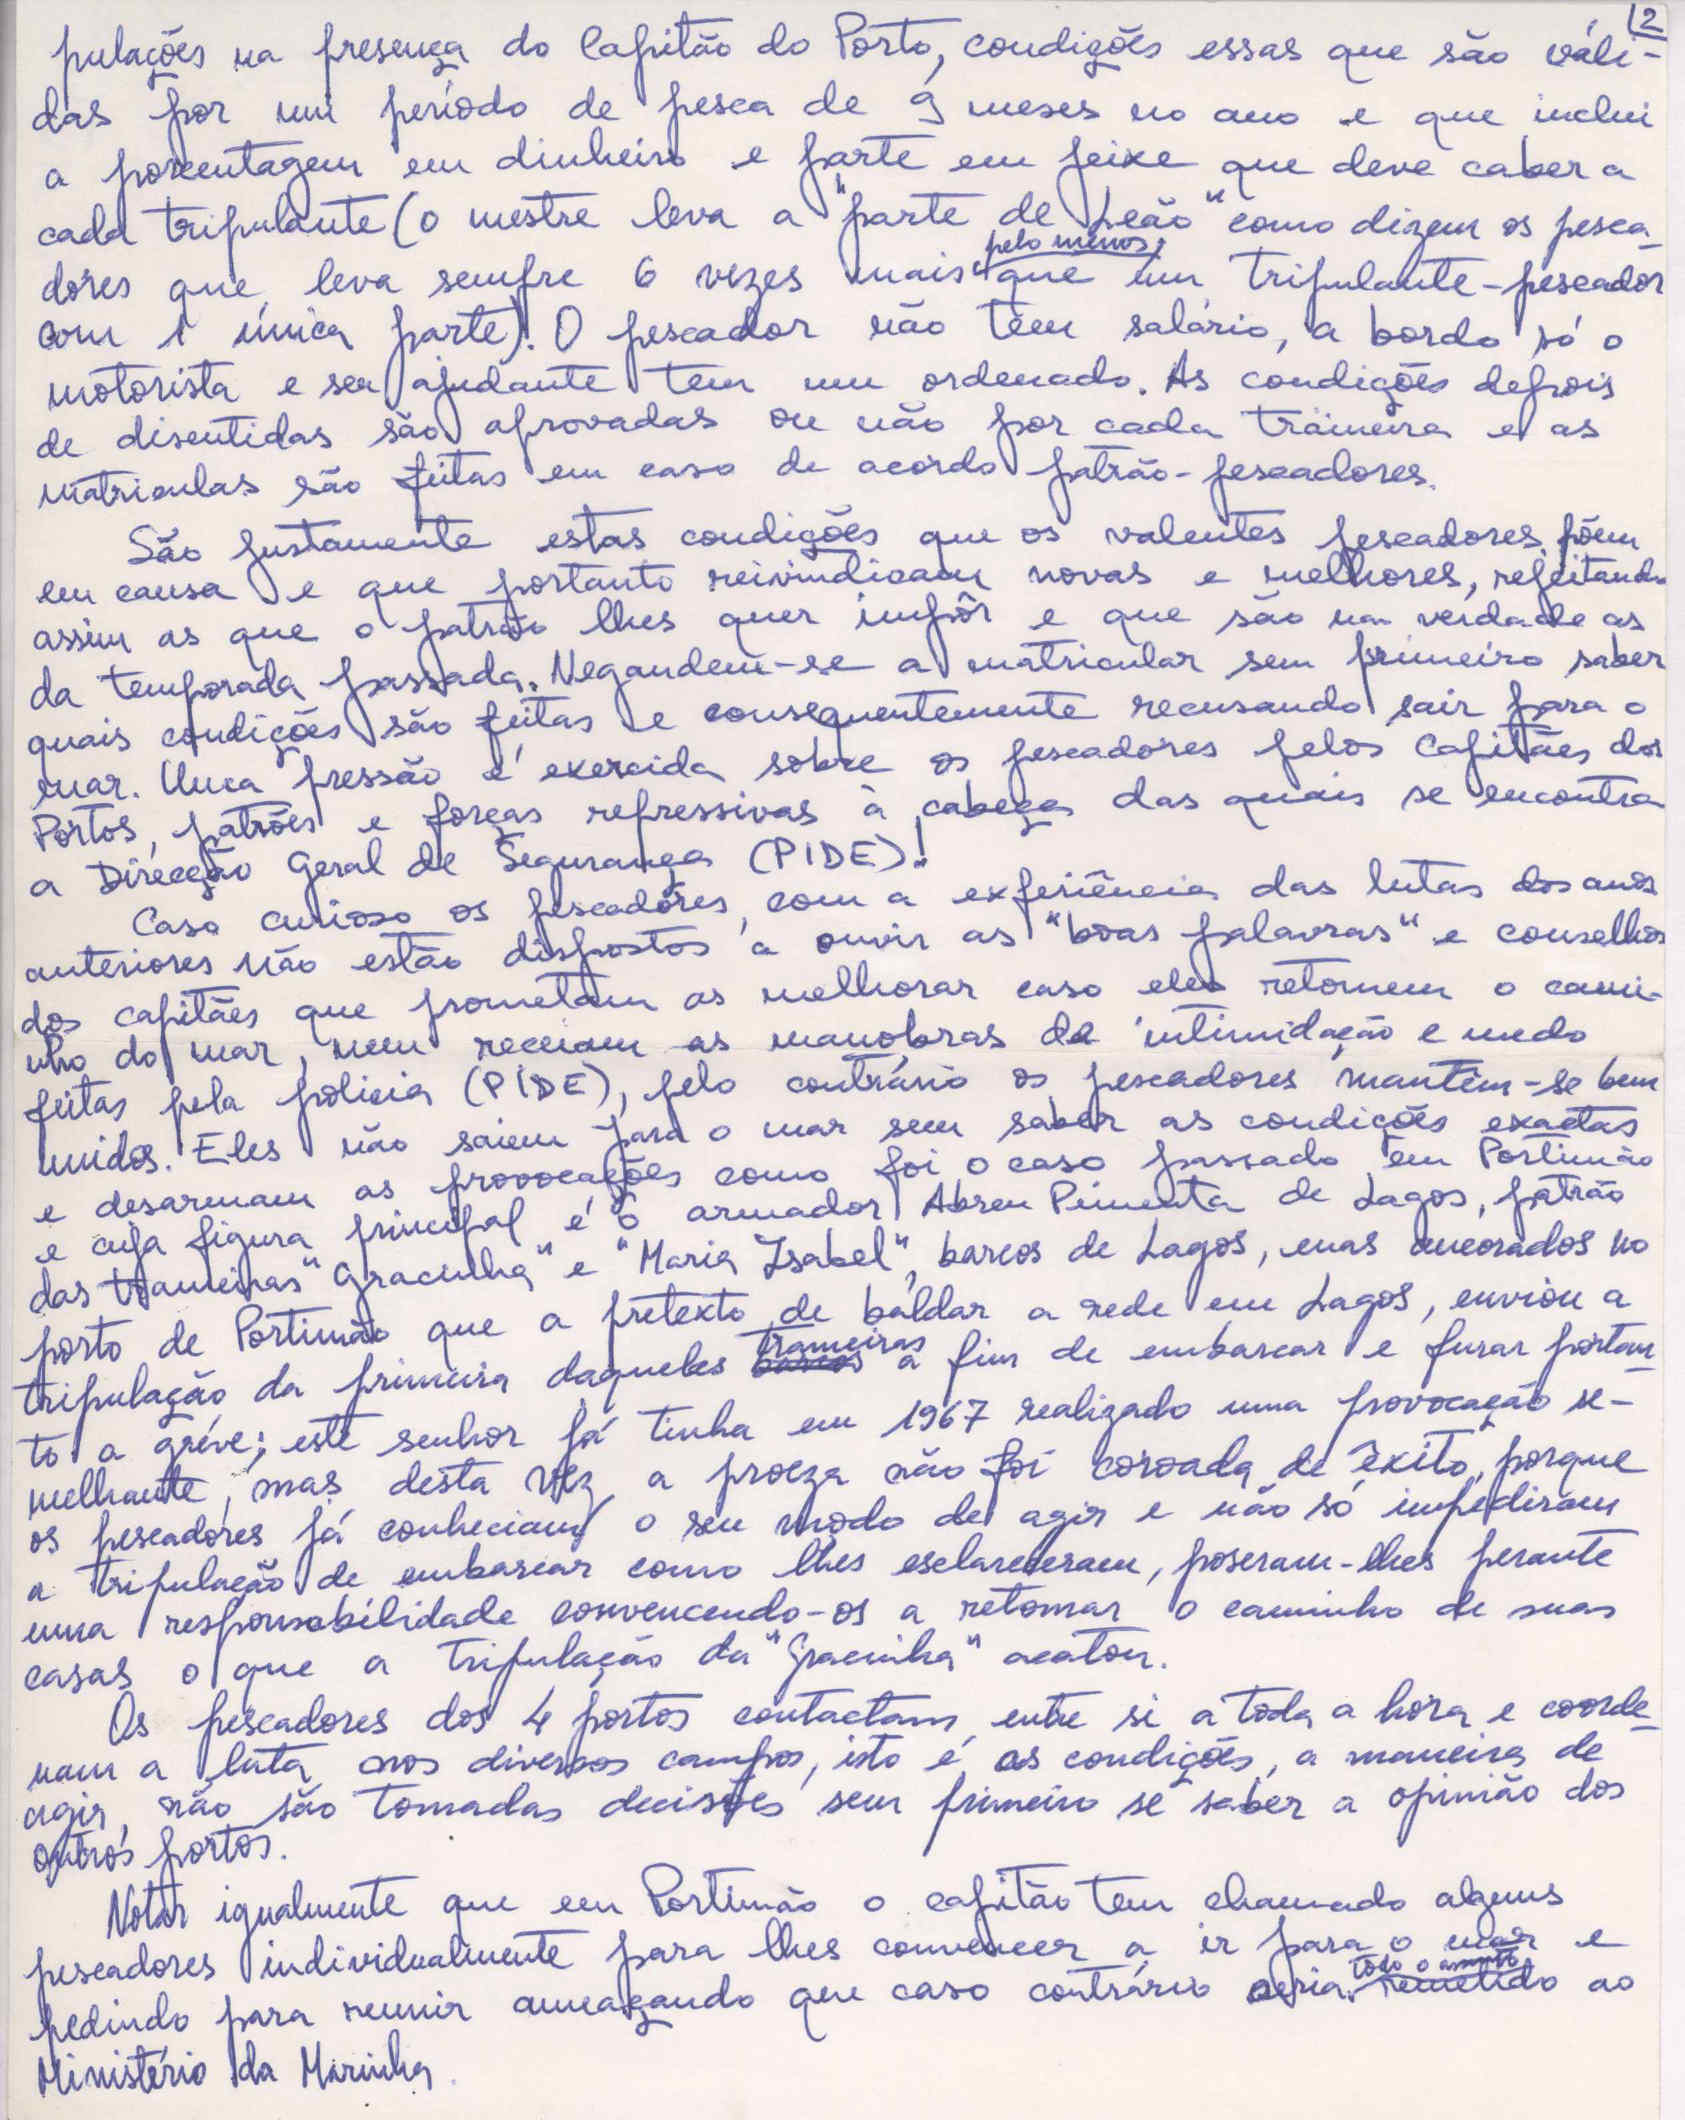 12
pulações na presença do Capitão do Porto, condições essas que são váli-
das por um período de pesca de 9 meses no ano e que inclui
a porcentagem em dinheiro e parte em peixe que deve caber a
cada tripulante (o mestre leva a "parte de Leão" como dizem os pesca-
dores que leva sempre 6 vezes mais pelo menos, que um tripulante-pescador
com 1 única parte). O pescador não tem salário, a bordo só o
motorista e seu ajudante tem um ordenado. As condições depois
de discutidas são aprovadas ou não por cada traineira e as
matriculas são feitas em caso de acordo patrão-pescadores.
São justamente estas condições que os valentes pescadores põem
em causa e que portanto reivindicam novas e melhores, rejeitando
assim as que o patrão lhes quer impôr e que são na verdade as
da temporada passada. Negandem-se a matricular sem primeiro saber
quais condições são feitas e consequentemente recusando sair para o
mar. Uma pressão é exercida sobre os pescadores pelos Capitães dos
Portos, patrões e forças repressivas à cabeça das quais se encontra
a Direcção Geral de Segurança (PIDE)!
Caso curioso os pescadores, com a experiência das lutas dos anos
anteriores não estão dispostos a ouvir as "boas palavras" e conselhos
dos capitães que prometam as melhorar caso eles retomem o cami-
nho do mar, nem receiam as manobras de intimidação e medo
feitas pela policia (PIDE), pelo contrário os pescadores mantêm-se bem
unidos. Eles não saiem para o mar sem saber as condições exactas
e desarmam as provocações como foi o caso passado em Portimão
e cuja figura principal é o armador Abreu Pimenta de Lagos, patrão
das traineiras "Gracinha" e "Maria Isabel", barcos de Lagos, mas ancorados no
porto de Portimão que a pretexto de baldar a rede em Lagos, enviou a
tripulação da primeira daqueles traineiras a fim de embarcar e furar portan-
to a gréve; este senhor já tinha em 1967 realizado uma provocação se-
melhante, mas desta vez a proeza não foi coroada de êxito, porque
os pescadores já conheciam o seu modo de agir e não só impediram
a tripulação de embarcar como lhes esclareceram, poseram-lhes perante
uma responsabilidade convencendo-os a retomar o caminho de suas
casas o que a tripulação da "Gracinha" acatou.
Os pescadores dos 4 portos contactam entre si a toda a hora e coorde-
nam a luta nos diversos campos, isto é, as condições, a maneira de
agir, não são tomadas decisões sem primeiro se saber a opinião dos
outros portos.
Notar igualmente que em Portimão o capitão tem chamado alguns
pescadores individualmente para lhes convencer a ir para o mar e
pedindo para reunir ameaçando que caso contrário seria todo o assunto remetido ao
Ministério da Marinha.